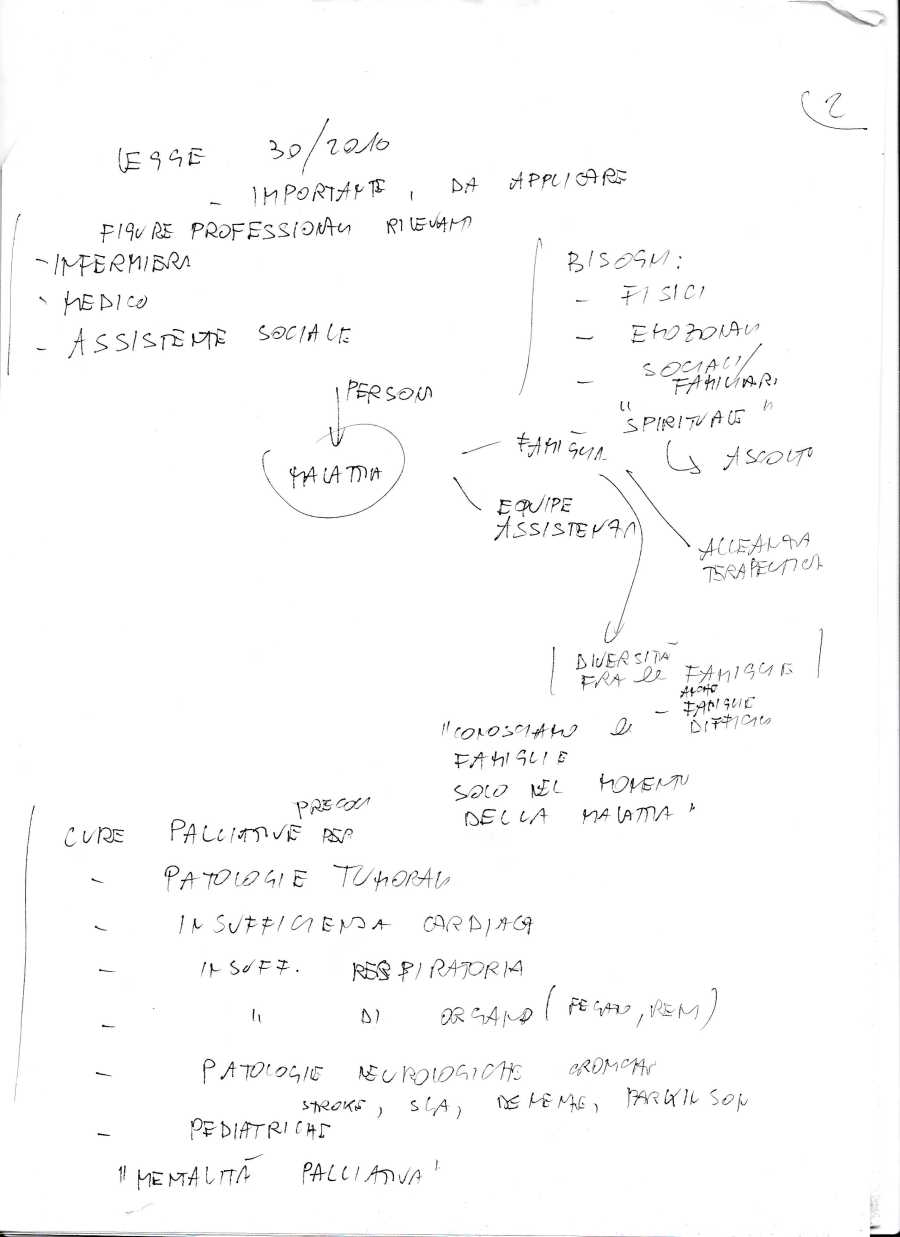 2
LEGGE 30/2010
- IMPORTANTE, DA APPLICARE
FIGURE PROFESSIONALI RILEVANTI
- INFERMIERA
- MEDICO
- ASSISTENTE SOCIALE
BISOGNI:
- FISICI
- EMOZIONALI
- SOCIALI/
FAMILIARI
"SPIRITUALE"
ASCOLTO
PERSONA
MALATTIA
- FAMIGLIA
EQUIPE
ASSISTENZA
ALLEANZA
TERAPEUTICA
DIVERSITÀ
FRA le FAMIGLIE
- ANCHE
FAMIGLIE
DIFFICILI
"CONOSCIAMO le
FAMIGLIE
SOLO NEL MOMENTO
DELLA MALATTIA"
PRECOCI
CURE PALLIATIVE PER
- PATOLOGIE TUMORALI
- INSUFFICIENZA CARDIACA
- INSUFF. RESPIRATORIA
- " DI ORGANO (FEGATO, RENI)
- PATOLOGIE NEUROLOGICHE CRONICHE
STROKE, SLA, DEMENZE, PARKINSON
- PEDIATRICHE
"MENTALITÀ PALLIATIVA"